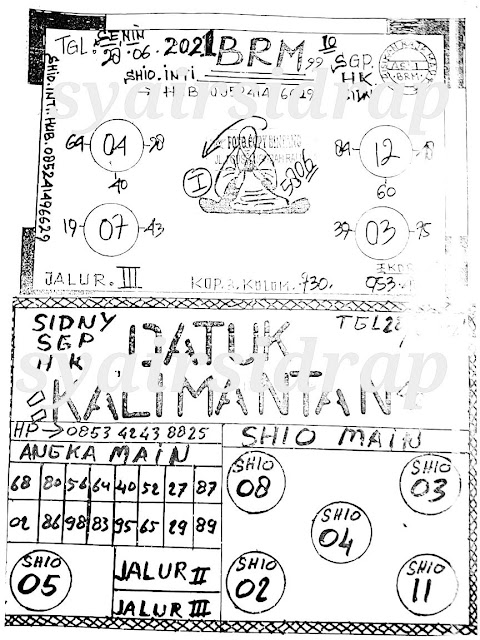 TGL. SENIN
28.06.2021 BRM 99 10
SHIO.INTI
SGP.
HK.
→ HUB 085241496629
SHIO.INTI.HUB.085241496629
syairsidrap
64 04
40
19 07 43
I
5306
84 12
60
37 03 75
JALUR. III KOP.2.KOLOM. 730. 953.
SIDNY
SGP
HK
TGL 28
DATUK
KALIMANTAN
syairsidrap
HP → 0853 4243 8825
ANGKA MAIN
68 80 56 64 40 52 27 87
02 86 98 83 95 65 29 89
SHIO 05
JALUR II
JALUR III
SHIO MAIN
SHIO 08
SHIO 03
SHIO 04
SHIO 02
SHIO 11